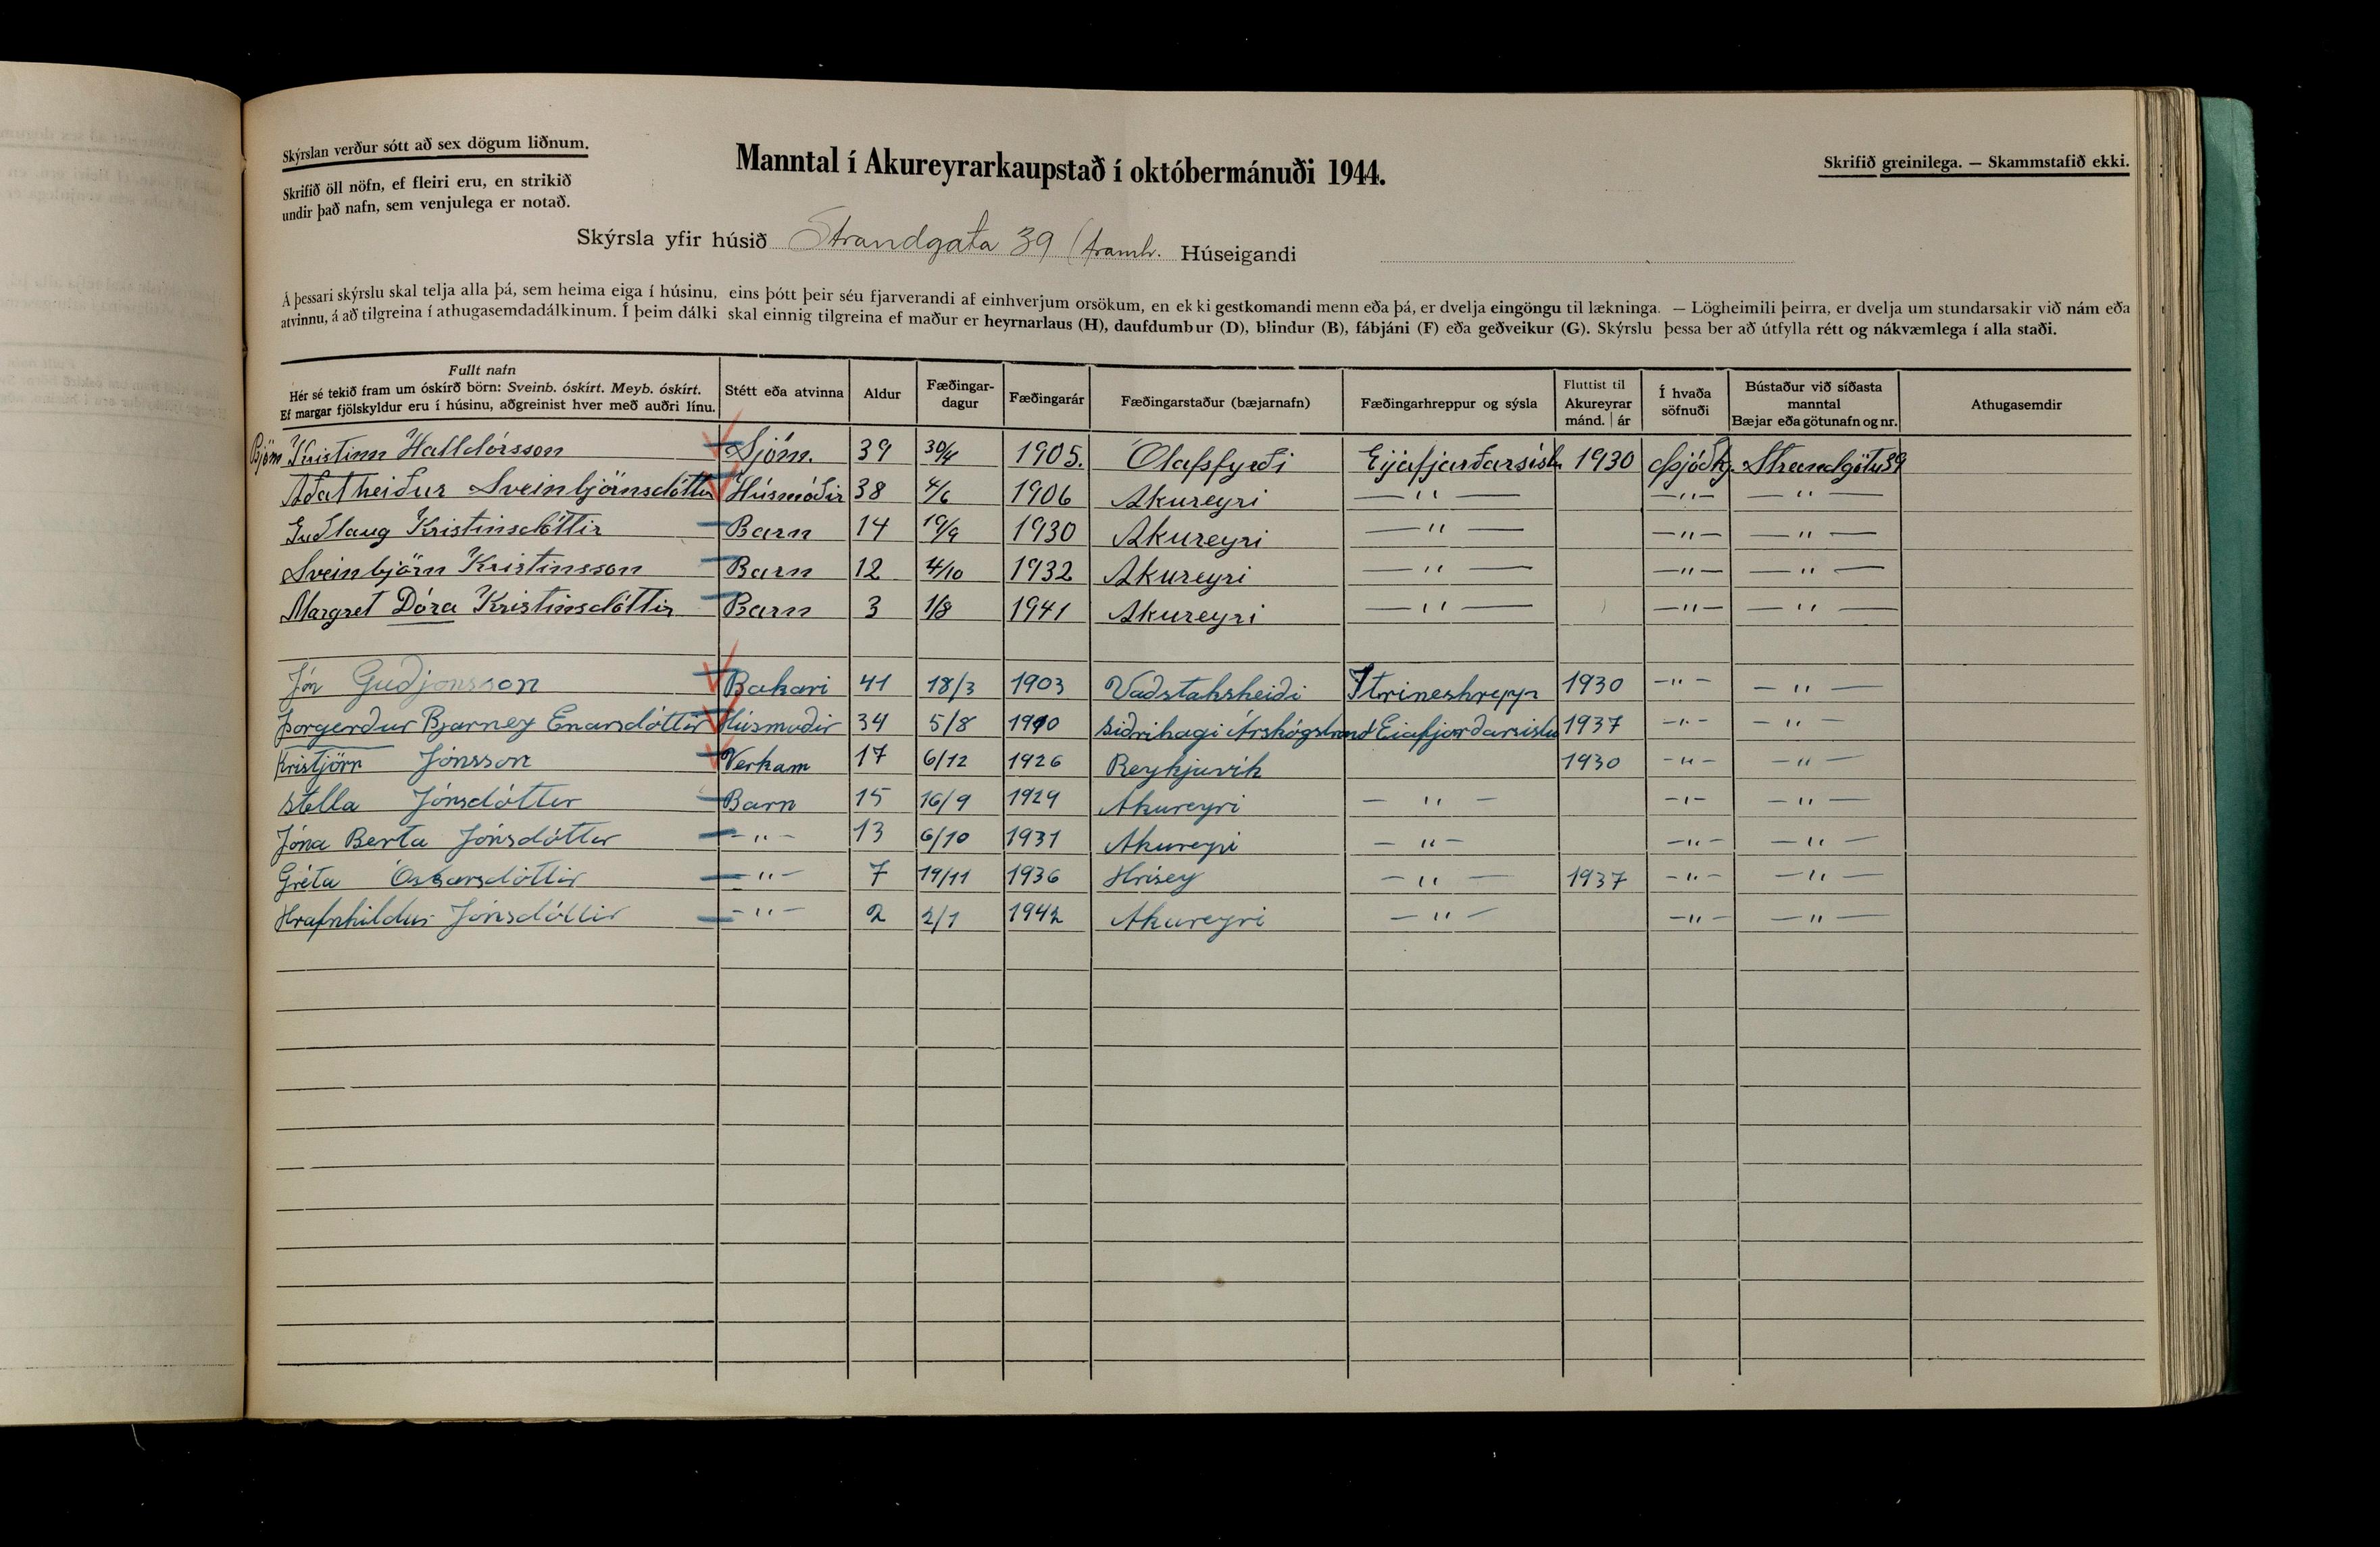 Skýrslan verður sótt að sex dögum liðnum.
Skrifið öll nöfn, ef fleiri eru, en strikið
undir það nafn, sem venjulega er notað.
Manntal í Akureyrarkaupstað í októbermánuði 1944.
Skrifið greinilega. — Skammstafið ekki.
Skýrsla yfir húsið Strandgata 39 (framh. Húseigandi
Á þessari skýrslu skal telja alla þá, sem heima eiga í húsinu, eins þótt þeir séu fjarverandi af einhverjum orsökum, en ekki gestkomandi menn eða þá, er dvelja eingöngu til lækninga. — Lögheimili þeirra, er dvelja um stundarsakir við nám eða
atvinnu, á að tilgreina í athugasemdadálkinum. Í þeim dálki skal einnig tilgreina ef maður er heyrnarlaus (H), daufdumbur (D), blindur (B), fábjáni (F) eða geðveikur (G). Skýrslu þessa ber að útfylla rétt og nákvæmlega í alla staði.
Fullt nafn
Hér sé tekið fram um óskírð börn: Sveinb. óskírt. Meyb. óskírt.
Ef margar fjölskyldur eru í húsinu, aðgreinist hver með auðri línu.
Stétt eða atvinna
Aldur
Fæðingar-
dagur
Fæðingarár
Fæðingarstaður (bæjarnafn)
Fæðingarhreppur og sýsla
Fluttist til
Akureyrar
mánd. | ár
Í hvaða
söfnuði
Bústaður við síðasta
manntal
Bæjar eða götunafn og nr.
Athugasemdir
Björn Kristinn Halldórsson Sjóm. 39 30/4 1905. Ólafsfyrði Eyjafjarðarsísl. 1930 Þjóðk. Strandgötu 39
Aðalheiður Sveinbjörnsdóttir Húsmóðir 38 4/6 1906 Akureyri — " — — " — — " —
Guðlaug Kristinsdóttir Barn 14 19/9 1930 Akureyri — " — — " — — " —
Sveinbjörn Kristinsson Barn 12 4/10 1932 Akureyri — " — — " — — " —
Margret Dóra Kristinsdóttir Barn 3 1/8 1941 Akureyri — " — — " — — " —
Jón Guðjonsson Bakari 41 18/3 1903 Vaðstaksheiði 1930 — " — — " —
Þorgerður Bjarney Enarsdóttir Húsmoðir 34 5/8 1910 Siðrihagi Árskógstrand Eiafjorðarsislu 1937 — " — — " —
Kristjörn Jónsson Verkam 17 6/12 1926 Reykjavík 1930 — " — — " —
Stella Jónsdóttir Barn 15 16/9 1929 Akureyri — " — — " — — " —
Jóna Berta Jónsdóttir — " — 13 6/10 1931 Akureyri — " — — " — — " —
Gréta Óskarsdóttir — " — 7 19/11 1936 Hrisey — " — 1937 — " — — " —
Hrafnhildur Jónsdóttir — " — 2 2/1 1942 Akureyri — " — — " — — " —